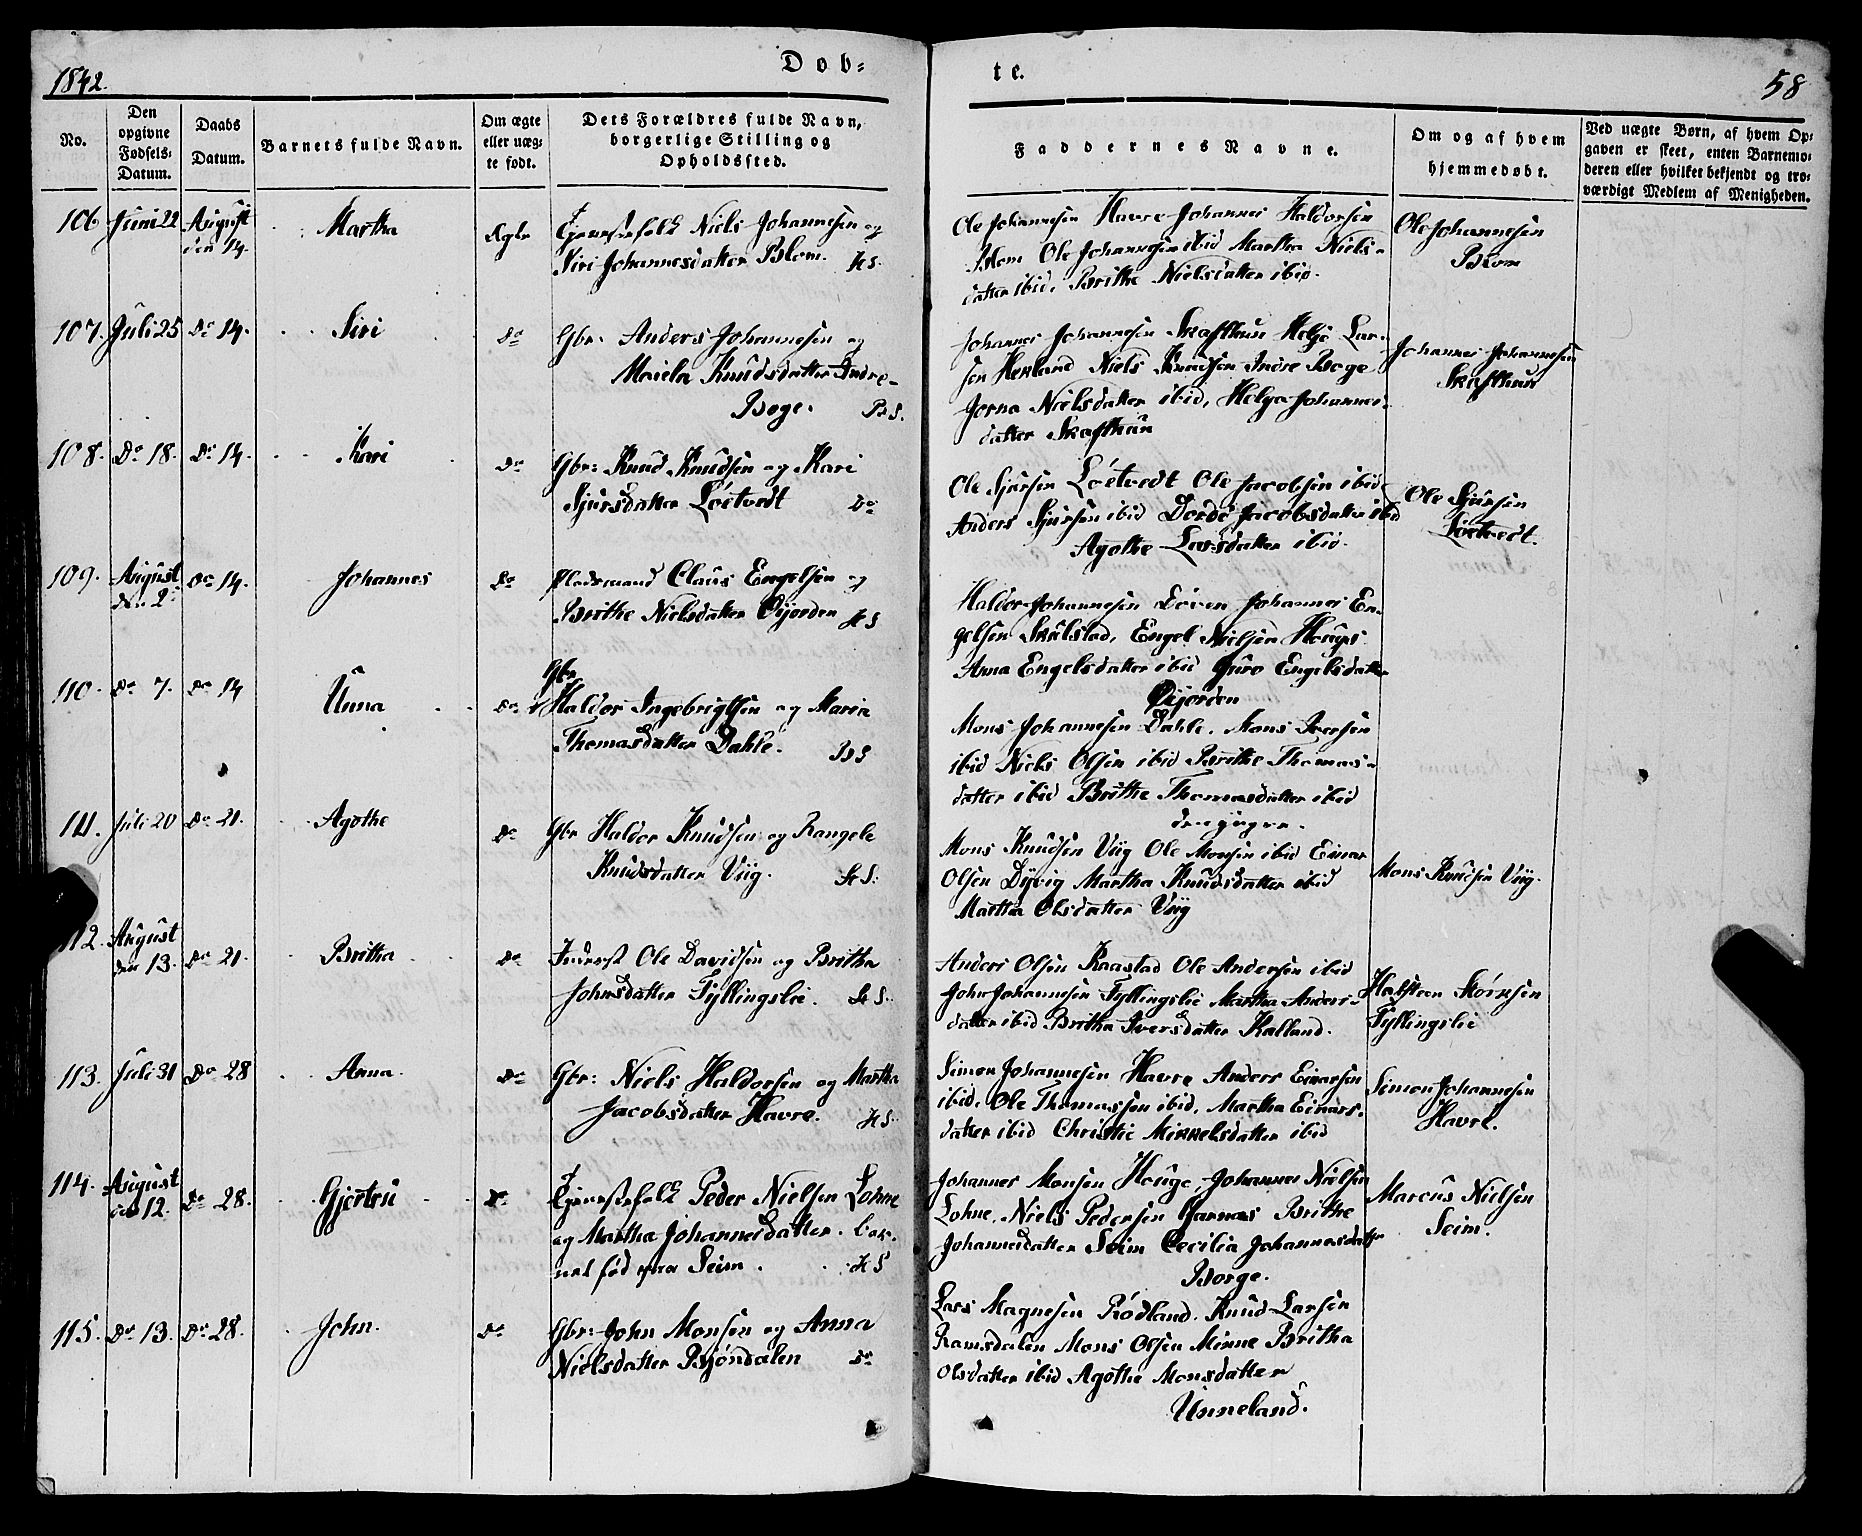 1842.
Døb-
te.
58
No.
Den opgivne Fødsels-Datum.
Daabs Datum.
Barnets fulde Navn.
Om ægte eller uægte født.
Dets Forældres fulde Navn, borgerlige Stilling og Opholdssted.
Faddernes Navne.
Om og af hvem hjemmedøbt.
Ved uægte Børn, af hvem Op-
gaven er skeet, enten Barnemo-
deren eller hvilket bekjendt og tro-
værdigt Medlem af Menigheden.
106 Juni 22 August den 14. Martha Ægte
Tjenestefolk Niels Johannesen og
Siri Johannesdatter Blom. HS.
Ole Johannesen Havre Johannes Haldorsen
Blom Ole Johannesen ibid Martha Niels-
datter ibid, Brithe Nielsdatter ibid.
Ole Johannesen
Blom
107. Juli 25 Do 14. Siri Do
Gbr. Anders Johannesen og
Knudsdatter Indre-
Boge. BS.
Johannes Johannesen Skafthun Helje Lar-
sen Herland Niels Knudsen Indre Boge
Jorna Nielsdatter ibid, Helga Johannes-
datter Skafthun
Johannes Johannesen
Skafthun
108. Do 18. Do 14. Kari Do
Gbr: Knud Knudsen og Kari
Sjursdatter Løetvedt Do
Ole Sjursen Løetvedt Ole Jacobsen ibid
Anders Sjursen ibid Dorde Jacobsdatter ibid
Agothe Larsdatter ibid.
Ole Sjursen
Løetvedt.
109. August den 2 Do 14. Johannes Do
Pladsmand Claus Engelsen og
Brithe Nielsdatter Øijorden HS
Haldor Johannesen Johannes En-
gelsen Skulstad, Engel Nielsen Houge
Anna Engelsdatter ibid Guro Engelsdatter
Øijorden
110. Do 7. Do 14 Unna Do
Gbr
Haldor Ingebrigtsen og Maria
Thomasdatter Dahle. BS
Mons Johannesen Dahle. Mons Iversen
ibid Niels Olsen ibid Brithe Thomas-
datter ibid Brithe Thomasdatter ibid
den yngre.
111. Juli 20 Do 21. Agothe Do
Gbr Haldor Knudsen og Rangele
Knudsdatter Viig. HS.
Mons Knudsen Viig Ole Monsen ibid Einar
Olsen Dyvig Martha Knudsdatter ibid
Martha Olsdatter Viig
Mons Knudsen Viig.
112. August den 13. Do 21. Britha Do
Inderst Ole Davidsen og Britha
Johnsdatter Fyllingslie. HS.
Anders Olsen Raastad Ole Andersen ibid
John Johannesen Fyllingslie Martha Anders-
datter ibid Britha Iversdatter Kalland.
Halsteen Størksen
Fyllingslie
113. Juli 31 Do 28 Anna. Do
Gbr: Niels Haldorsen og Martha
Jacobsdatter Havre. HS.
Simon Johannesen Havre Anders Einarsen
ibid, Ole Thomassen ibid, Martha Einars-
datter ibid Christie Mikkelsdatter ibid
Simon Johannesen
Havre.
114. August den 12. Do 28. Gjertru Do
Tjenestefolk Peder Nielsen Lohne
og Martha Johannesdatter. Bar-
net fød paa Seim. HS
Johannes Monsen Houge, Johannes Nielsen
Lohne, Niels Pedersen Garnas Brithe
Johannesdatter Seim Cecilia Johannesdatter
Borge.
Marcus Nielsen
Seim.
115. Do 13. Do 28. John. Do
Gbr: John Monsen og Anna
Nielsdatter Bjøndalen Do
Lars Magnesen Rødland. Knud Larsen
Ramsdalen Mons Olsen Minne Britha
Olsdatter ibid Agothe Monsdatter
Unneland.